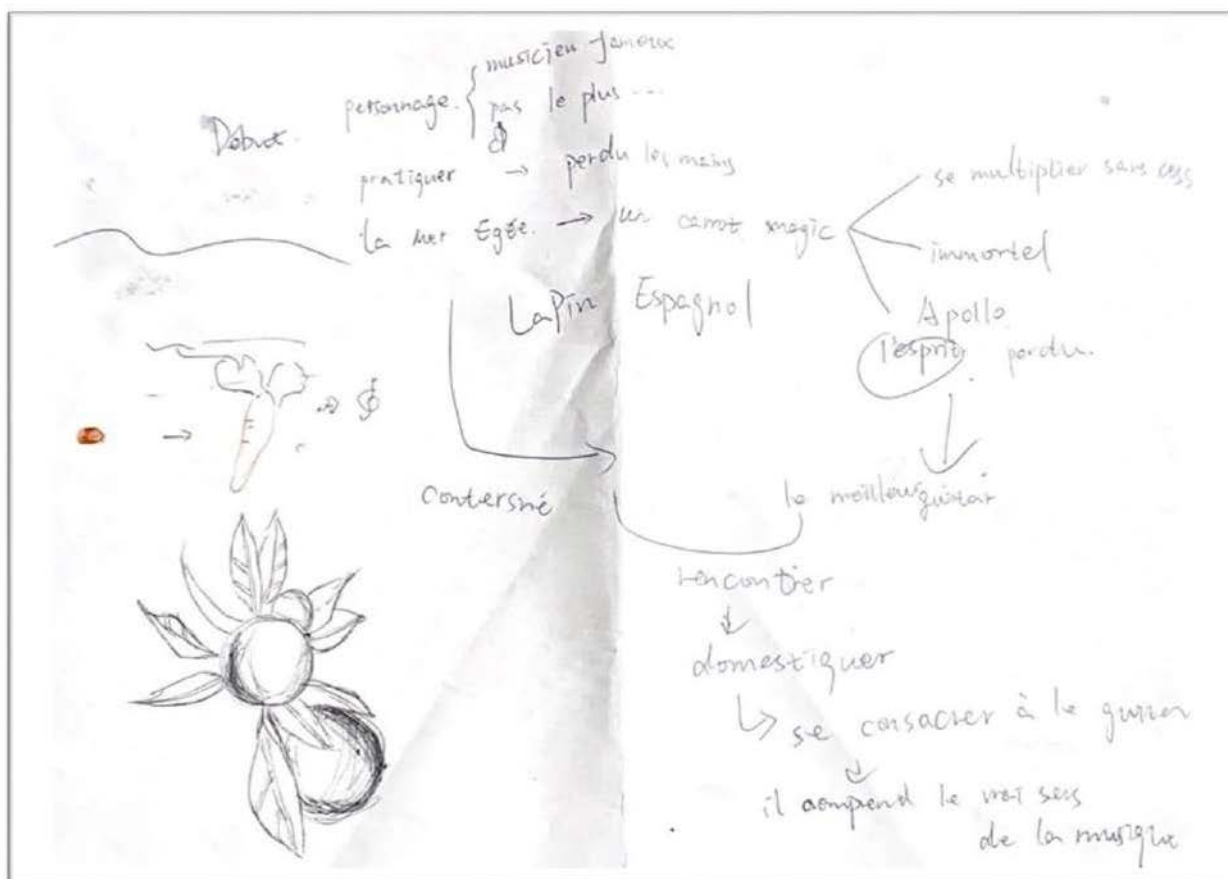 Début
personnage. musicien fameux
pas le plus ...
pratiquer → perdu les mains
la mer Egée. → un carrot magic
se multiplier sans cess
immortel
Apollo
l'esprit perdu.
LaPin Espagnol
contersné
le meilleur guitar
rencontrer
domestiquer
se consacrer à le
il comprend le vrai sess
de la musique